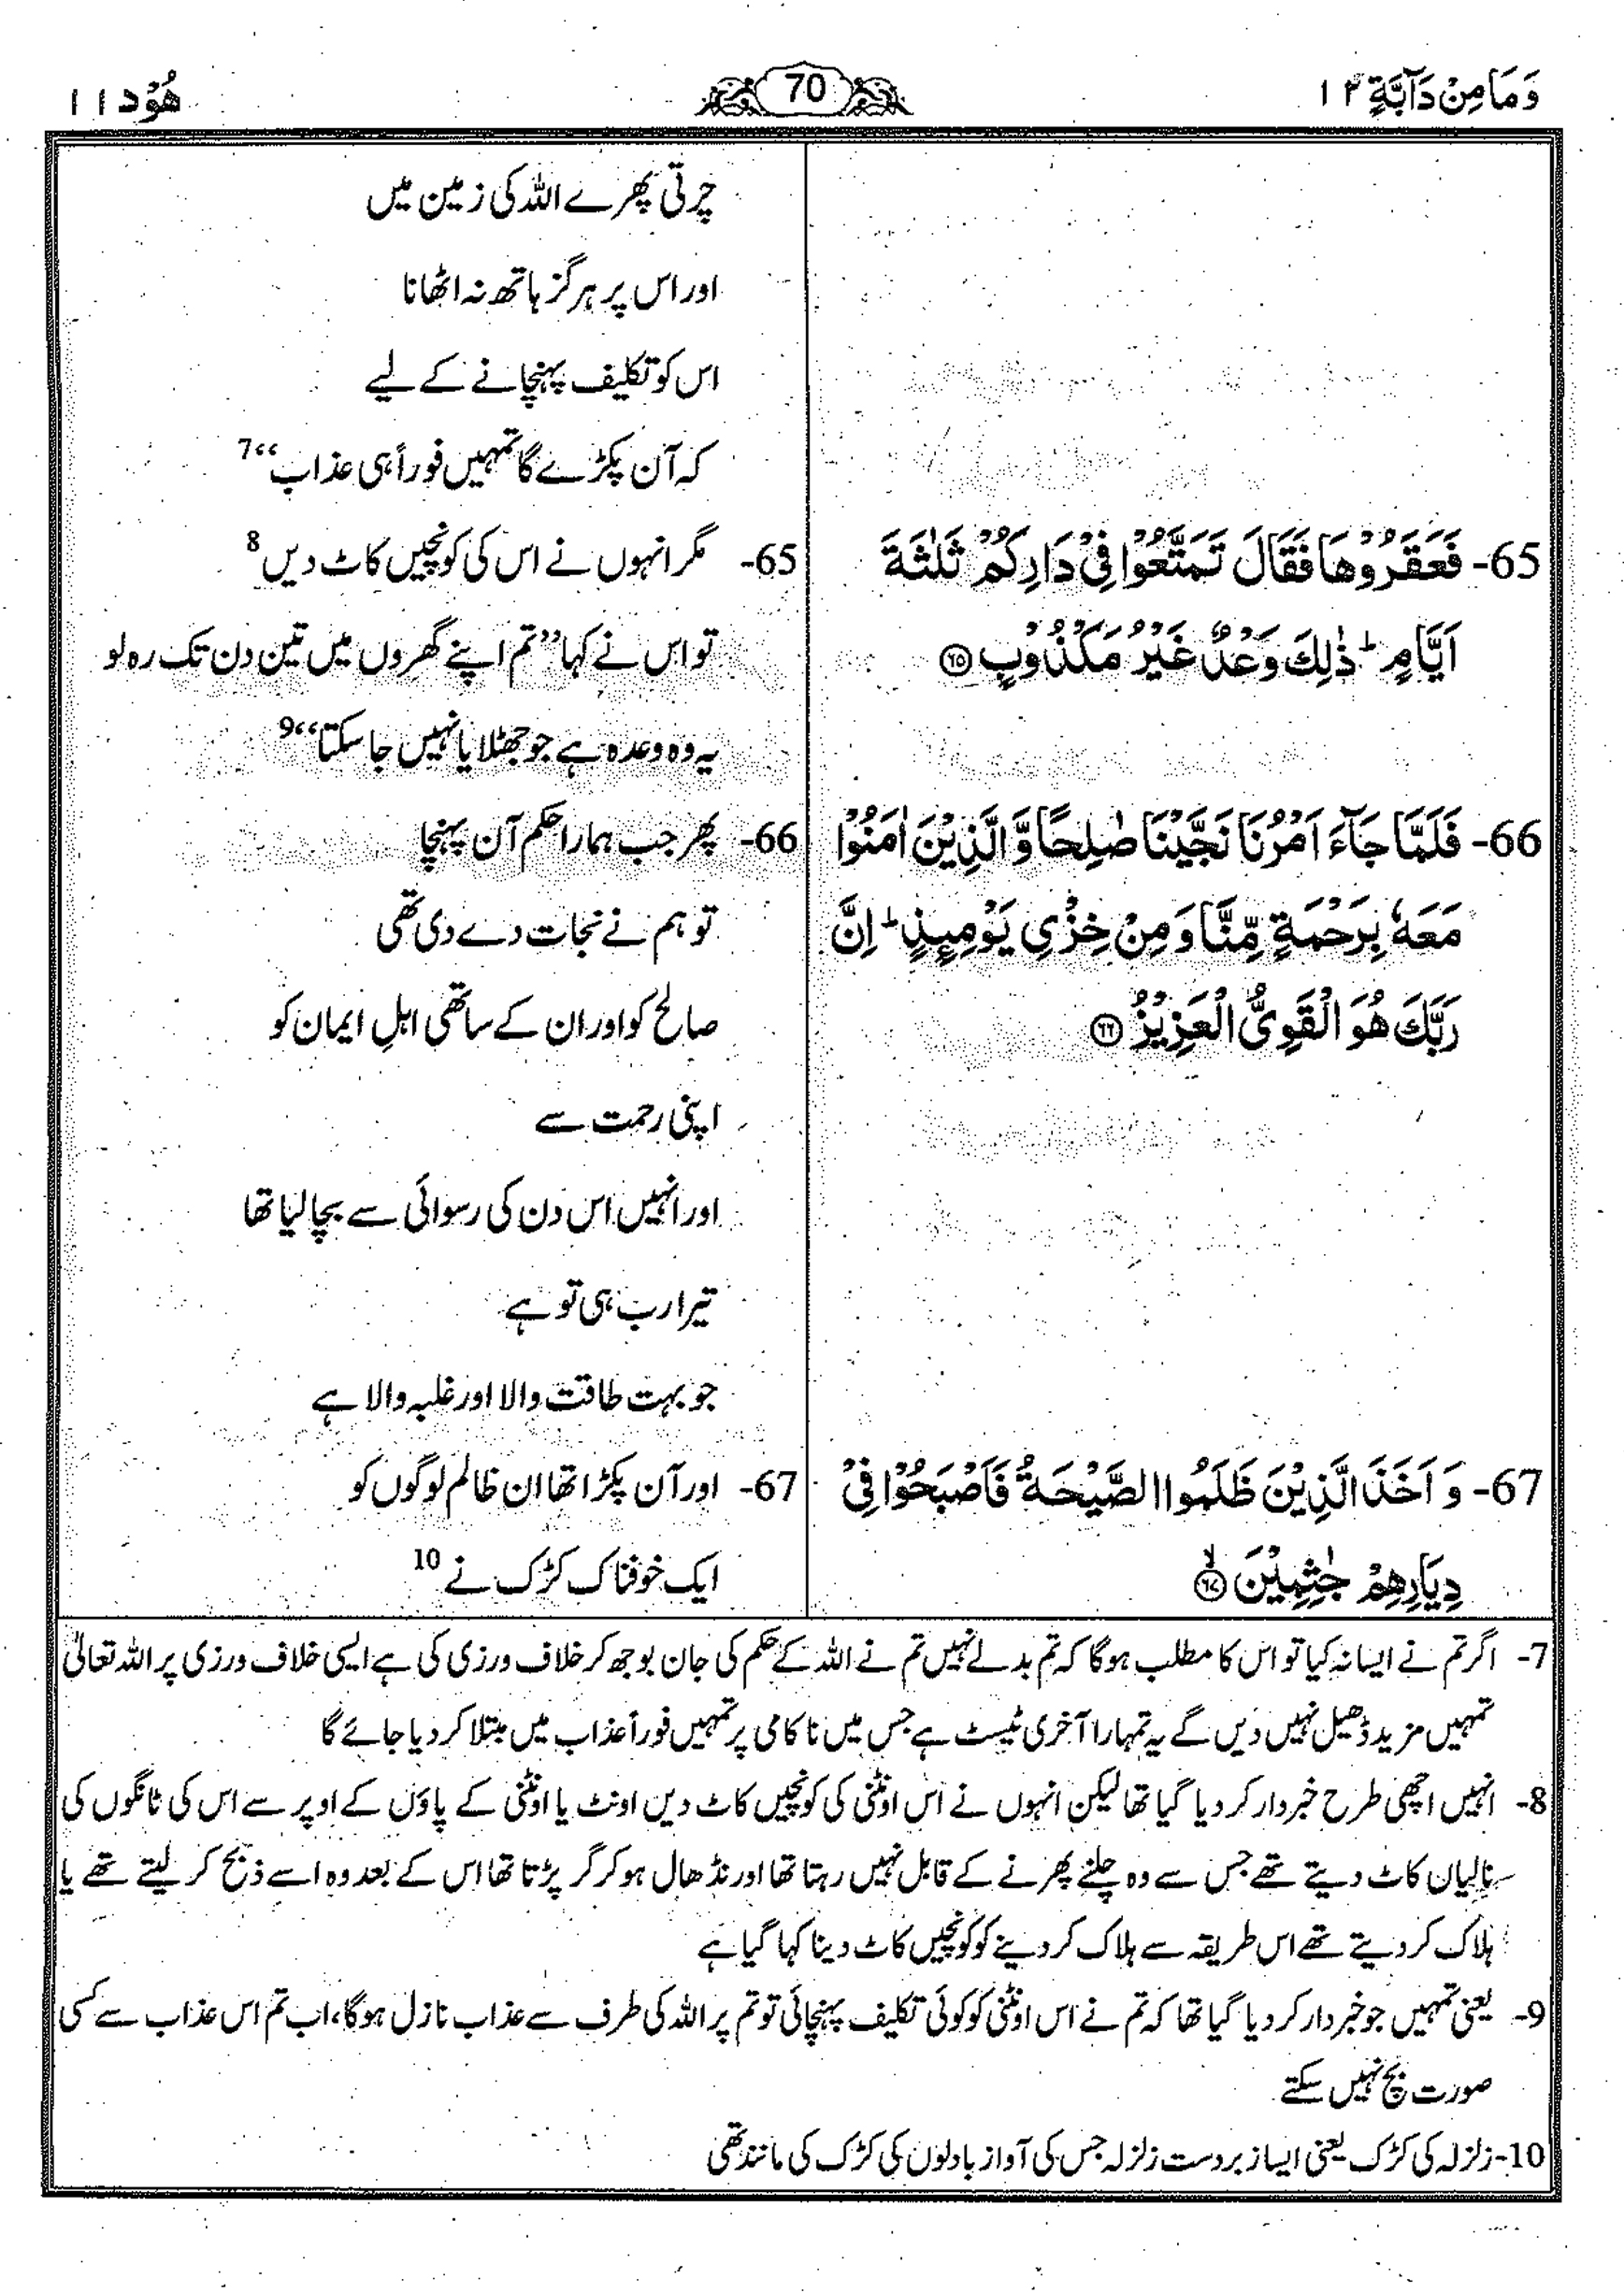 وَمَا مِنْ دَآبَّةٍ ١٢
70
هُوْد ١١
چرتی پھرے اللہ کی زمین میں
اور اس پر ہرگز ہاتھ نہ اٹھانا
اس کو تکلیف پہنچانے کے لیے
کہ آن پکڑے گا تمہیں فوراً ہی عذاب‘‘7
65- فَعَقَرُوْهَا فَقَالَ تَمَتَّعُوْا فِيْ دَارِكُمْ ثَلٰثَةَ
اَيَّامٍ ؕ ذٰلِكَ وَعْدٌ غَيْرُ مَكْذُوْبٍ ۝٦٥
65- مگر انہوں نے اس کی کونچیں کاٹ دیں 8
تو اس نے کہا ’’تم اپنے گھروں میں تین دن تک رہ لو
یہ وہ وعدہ ہے جو جھٹلایا نہیں جا سکتا‘‘9
66- فَلَمَّا جَآءَ اَمْرُنَا نَجَّيْنَا صٰلِحًا وَّ الَّذِيْنَ اٰمَنُوْا
مَعَهٗ بِرَحْمَةٍ مِّنَّا وَ مِنْ خِزْيِ يَوْمِىِٕذٍ ؕ اِنَّ
رَبَّكَ هُوَ الْقَوِيُّ الْعَزِيْزُ ۝٦٦
66- پھر جب ہمارا حکم آن پہنچا
تو ہم نے نجات دے دی تھی
صالح کو اور ان کے ساتھی اہلِ ایمان کو
اپنی رحمت سے
اور انہیں اس دن کی رسوائی سے بچا لیا تھا
تیرا رب ہی تو ہے
جو بہت طاقت والا اور غلبہ والا ہے
67- وَ اَخَذَ الَّذِيْنَ ظَلَمُوا الصَّيْحَةُ فَاَصْبَحُوْا فِيْ
دِيَارِهِمْ جٰثِمِيْنَ ۝٦٧ۙ
67- اور آن پکڑا تھا ان ظالم لوگوں کو
ایک خوفناک کڑک نے 10
7- اگر تم نے ایسا نہ کیا تو اس کا مطلب ہوگا کہ تم بدلے نہیں تم نے اللہ کے حکم کی جان بوجھ کر خلاف ورزی کی ہے ایسی خلاف ورزی پر اللہ تعالیٰ
تمہیں مزید ڈھیل نہیں دیں گے یہ تمہارا آخری ٹیسٹ ہے جس میں ناکامی پر تمہیں فوراً عذاب میں مبتلا کر دیا جائے گا
8- انہیں اچھی طرح خبردار کر دیا گیا تھا لیکن انہوں نے اس اونٹنی کی کونچیں کاٹ دیں اونٹ یا اونٹنی کے پاؤں کے اوپر سے اس کی ٹانگوں کی
نالیاں کاٹ دیتے تھے جس سے وہ چلنے پھرنے کے قابل نہیں رہتا تھا اور نڈھال ہو کر گر پڑتا تھا اس کے بعد وہ اسے ذبح کر لیتے تھے یا
ہلاک کر دیتے تھے اس طریقہ سے ہلاک کر دینے کو کونچیں کاٹ دینا کہا گیا ہے
9- یعنی تمہیں جو خبردار کر دیا گیا تھا کہ تم نے اس اونٹنی کو کوئی تکلیف پہنچائی تو تم پر اللہ کی طرف سے عذاب نازل ہوگا، اب تم اس عذاب سے کسی
صورت بچ نہیں سکتے
10- زلزلہ کی کڑک یعنی ایسا زبردست زلزلہ جس کی آواز بادلوں کی کڑک کی مانند تھی